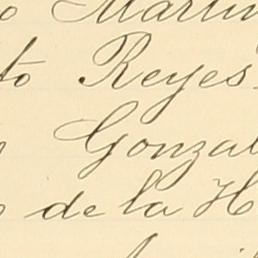 o Martin
to Reyes
Gonzal
de la H